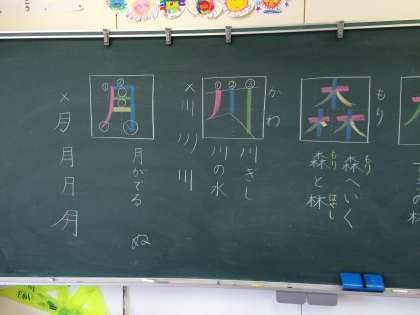 もり
森
森へいく
もり
森と林
もり はやし
かわ
川
① ② ③
川ぎし
川の水
×
川
川
川
月
① ②
月がでる
ぬ
×
月
月
月